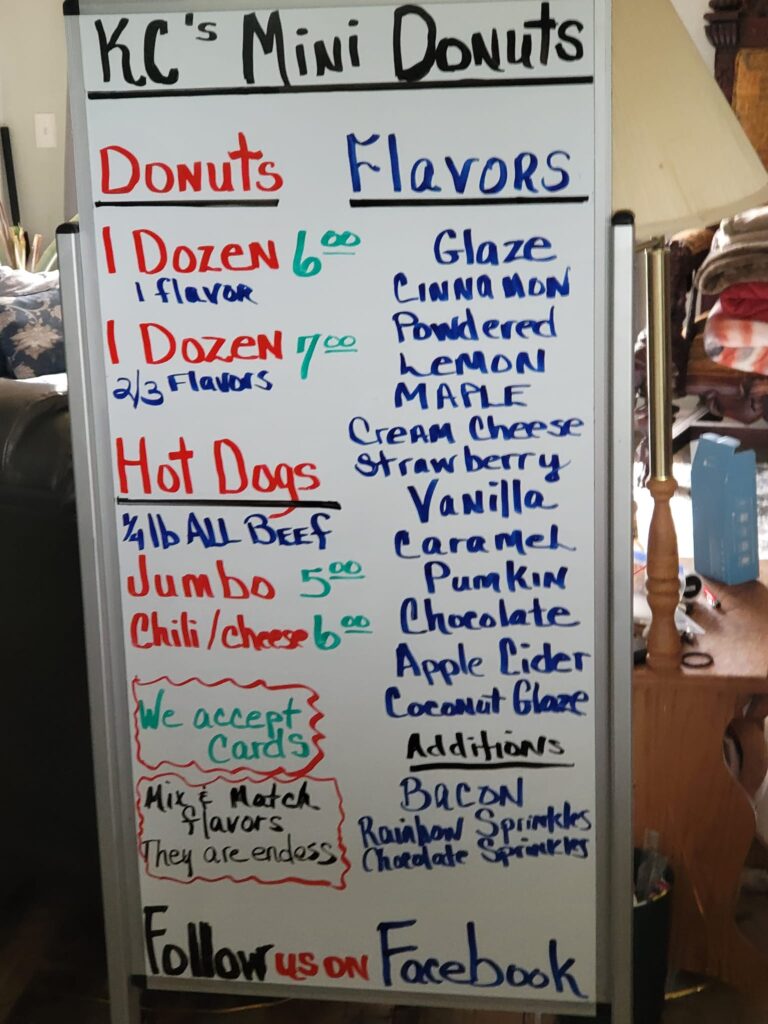 KC's Mini Donuts
Donuts
1 Dozen 6⁰⁰
1 flavor
1 Dozen 7⁰⁰
2/3 Flavors
Hot Dogs
1/4 lb All Beef
Jumbo 5⁰⁰
Chili/cheese 6⁰⁰
We accept
Cards
Mix & Match
flavors
They are endess
Flavors
Glaze
Cinnamon
Powdered
Lemon
Maple
Cream Cheese
Strawberry
Vanilla
Caramel
Pumkin
Chocolate
Apple Cider
Coconut Glaze
Additions
Bacon
Rainbow Sprinkles
Chocolate Sprinkles
Follow us on Facebook